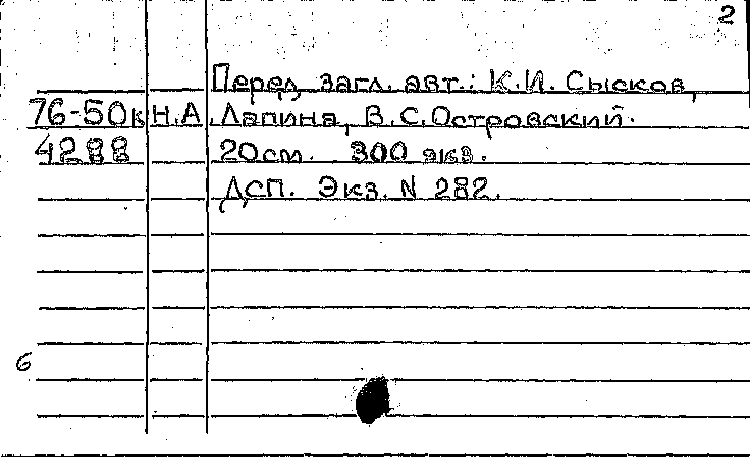 2
Перед загл. авт.: К.И. Сысков,
76-50к Н.А. Лапина, В.С. Островский.
4288 20см. 300 экз.
ДСП. Экз. N 282.
6